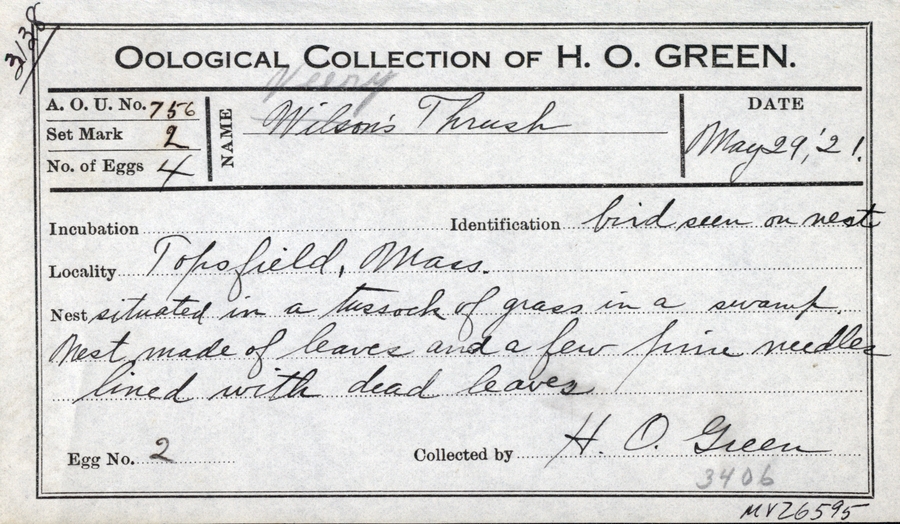 3138
OOLOGICAL COLLECTION OF H. O. GREEN.
Veery
A. O. U. No. 756
Set Mark 2
No. of Eggs 4
NAME
Wilson's Thrush
DATE
May 29, '21.
Incubation
Identification bird seen on nest
Locality Topsfield, Mass.
Nest situated in a tussock of grass in a swamp.
Nest made of leaves and a few pine needles
lined with dead leaves
Egg No. 2
Collected by H. O. Green
3406
MVZ6595